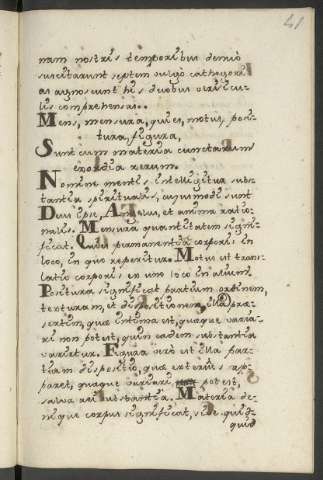 41
nam nostris temporibus denuo
suscitarunt septem vulgo cathegori-
as agnoscunt his duobus versicu-
lis comprehensas.
Mens, mensura, quies, motus, posi-
tura, figura,
Sunt cum materia cunctarum
exordia rerum.
Nomine mentis intelligitur subs-
tantia spiritualis, cujusmodi sunt
Deus ipse, Angelus, et anima ratio-
nalis. Mensura quantitatem signi-
ficat. Quies permanentia corporis in
loco, in quo reperitur. Motus est trans-
latio corporis ex uno loco in alium.
Positura significat partium ordinem,
texturam, et dispositionem, illa præ-
sertim, quæ intima est, quæque varia-
ri non potest, quin eadem substantia
varietur. Figura verò est illa par-
tium dispositio, quæ exterius ap-
paret, quæque variari potest,
salva rei substantia. Materia de-
nique corpus significat, sive quid-
quid